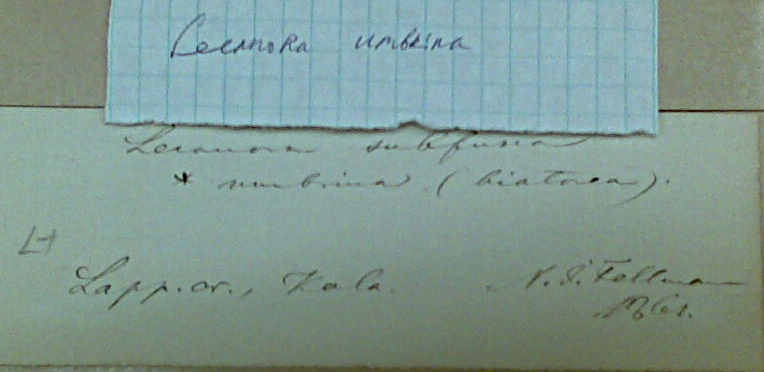 Lecanora umbrina
Lecanora subfusca
* umbrina (biatorea).
H
Lapp. or., Kola. N. I. Fellman
1861.